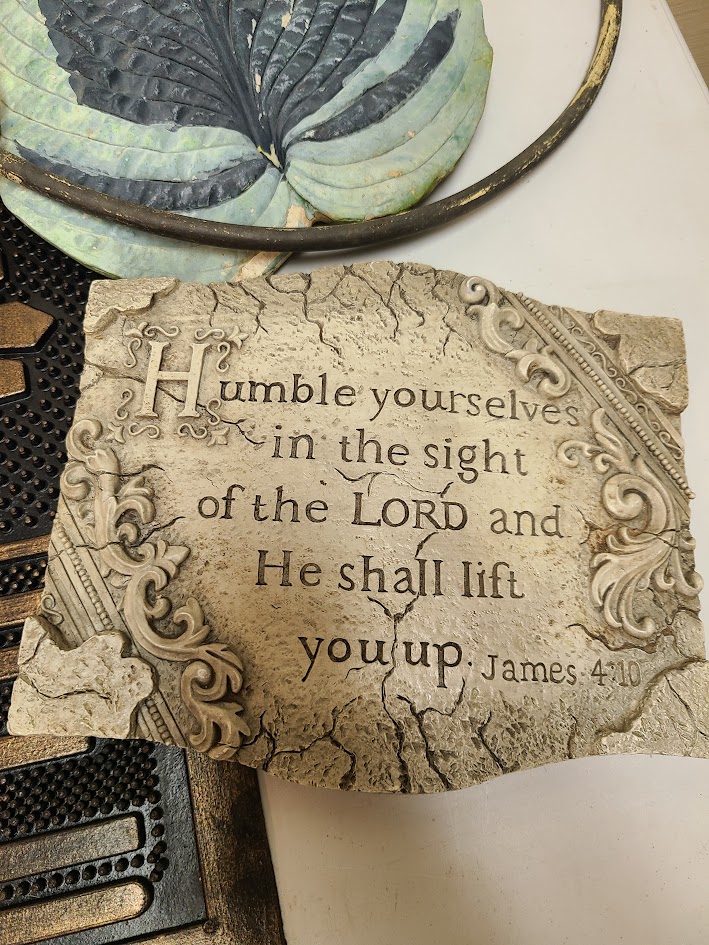 Humble yourselves
in the sight
of the LORD and
He shall lift
you up. James 4:10